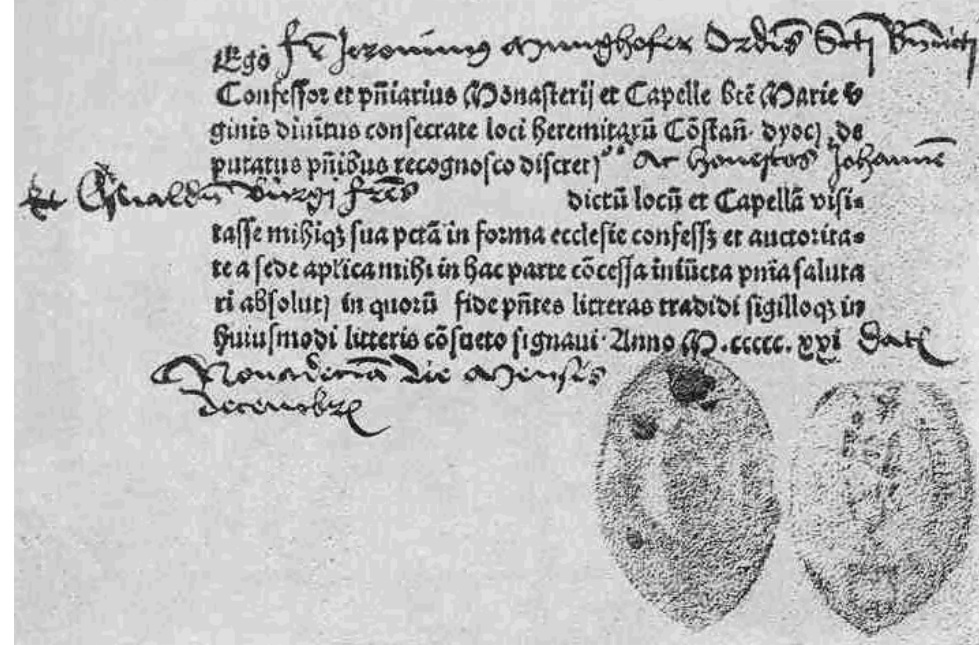 Ego fr Jeronimus Munghofer Ordīs Scti Bndicti
Confessor et pñiarius Monasterij et Capelle btē Marie v
ginis diuitus consecrate loci heremitarū Cōstañ. dyoc; de
putatus pñibus recognosco discret; Ac honestos Johannē
Et Oswaldū Burgi frēs dictū locū et Capellā visi-
tasse mihiq; sua pctā in forma ecclesie confess; et auctorita-
te a sede aplica mihi in hac parte cōcessa iniūcta pnīa saluta
ri absolut; in quorū fide pñtes litteras tradidi sigilloq; in
huiusmodi litteris cōsueto signaui. Anno M.ccccc.xxi Dat
Nonadecīa die Mensis
decembr